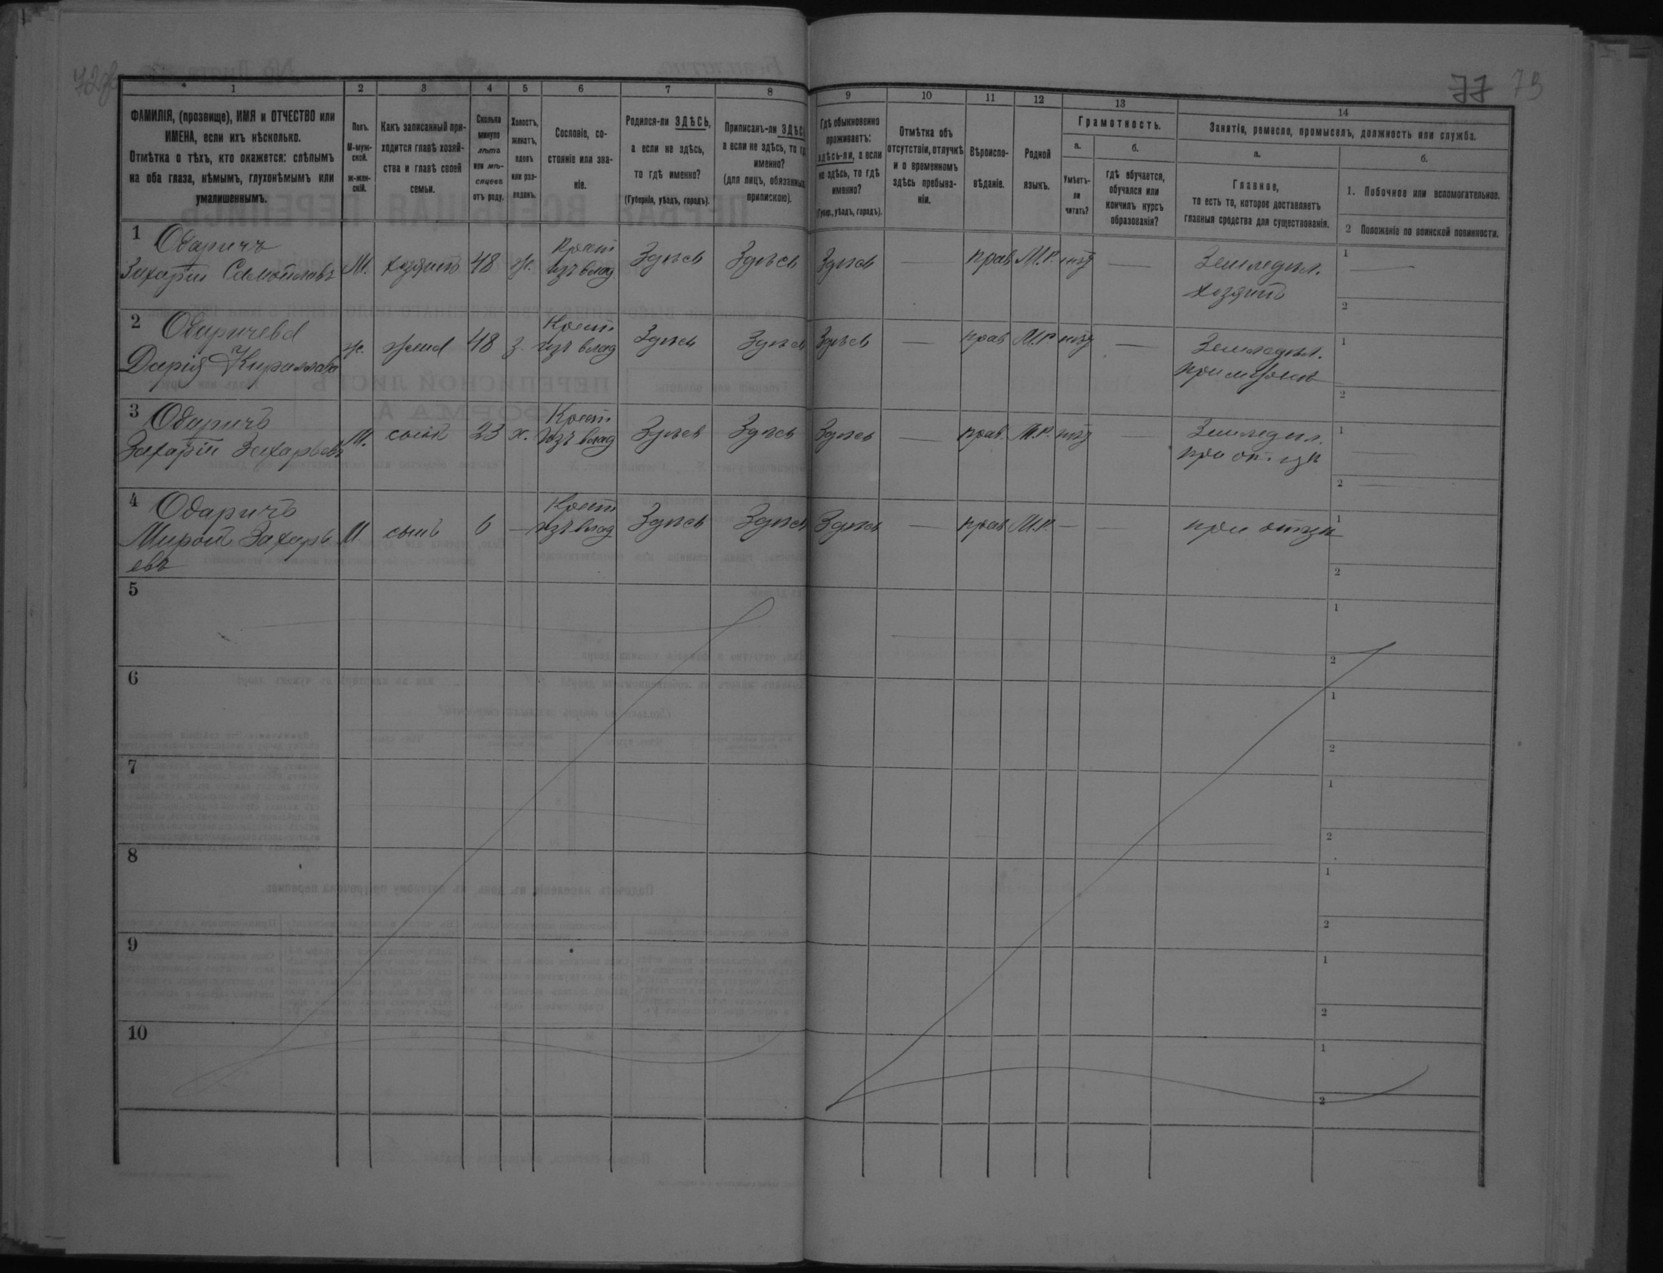 72об
77 73
1
2
3
4
5
6
7
8
9
10
11
12
13
14
ФАМИЛІЯ, (прозвище), ИМЯ и ОТЧЕСТВО или
ИМЕНА, если ихъ нѣсколько.
Отмѣтка о тѣхъ, кто окажется: слѣпымъ
на оба глаза, нѣмымъ, глухонѣмымъ или
умалишеннымъ.
Полъ.
М-муж-
ской.
ж-жен-
скій.
Какъ записанный при-
ходится главѣ хозяй-
ства и главѣ своей
семьи.
Сколько
минуло
лѣтъ
или мѣ-
сяцевъ
отъ роду.
Холостъ,
женатъ,
вдовъ
или раз-
веденъ.
Сословіе, со-
стояніе или зва-
ніе.
Родился-ли ЗДѢСЬ,
а если не здѣсь,
то гдѣ именно?
(Губернія, уѣздъ, городъ).
Приписанъ-ли ЗДѢСЬ,
а если не здѣсь, то гдѣ
именно?
(для лицъ, обязанныхъ
припискою).
Гдѣ обыкновенно
проживаетъ:
здѣсь-ли, а если
не здѣсь, то гдѣ
именно?
(Губер., уѣздъ, городъ).
Отмѣтка объ
отсутствіи, отлучкѣ
и о временномъ
здѣсь пребыва-
ніи.
Вѣроиспо-
вѣданіе.
Родной
языкъ.
Грамотность.
а.
Умѣетъ-
ли
читать?
б.
гдѣ обучается,
обучался или
кончилъ курсъ
образованія?
Занятіе, ремесло, промыселъ, должность или служба.
а.
Главное,
то есть то, которое доставляетъ
главныя средства для существованія.
б.
1. Побочное или вспомогательное.
2 Положеніе по воинской повинности.
1 Одаричъ
Захарій Самойловъ М. хозяинъ 48 ж. Крест изъ влад Здѣсь Здѣсь Здѣсь — прав М.Р. нѣт — Земледѣл. хозяинъ 1 —
2
2 Одаричева
Дарія Кирилова ж. жена 48 з. Крест изъ влад Здѣсь Здѣсь Здѣсь — прав М.Р. нѣт — Земледѣл. при мужѣ 1
2
3 Одаричъ
Захарій Захарьевъ М. сынъ 23 х. Крест изъ влад Здѣсь Здѣсь Здѣсь — прав. М.Р. нѣт — Земледѣл. при от. цѣ 1 —
2 —
4 Одаричъ
Миронъ Захарь
евъ М сынъ 6 — Крест изъ влад Здѣсь Здѣсь Здѣсь — прав М.Р. — — при отцѣ 1
2
5 1
2
6 1
2
7 1
2
8 1
2
9 1
2
10 1
2